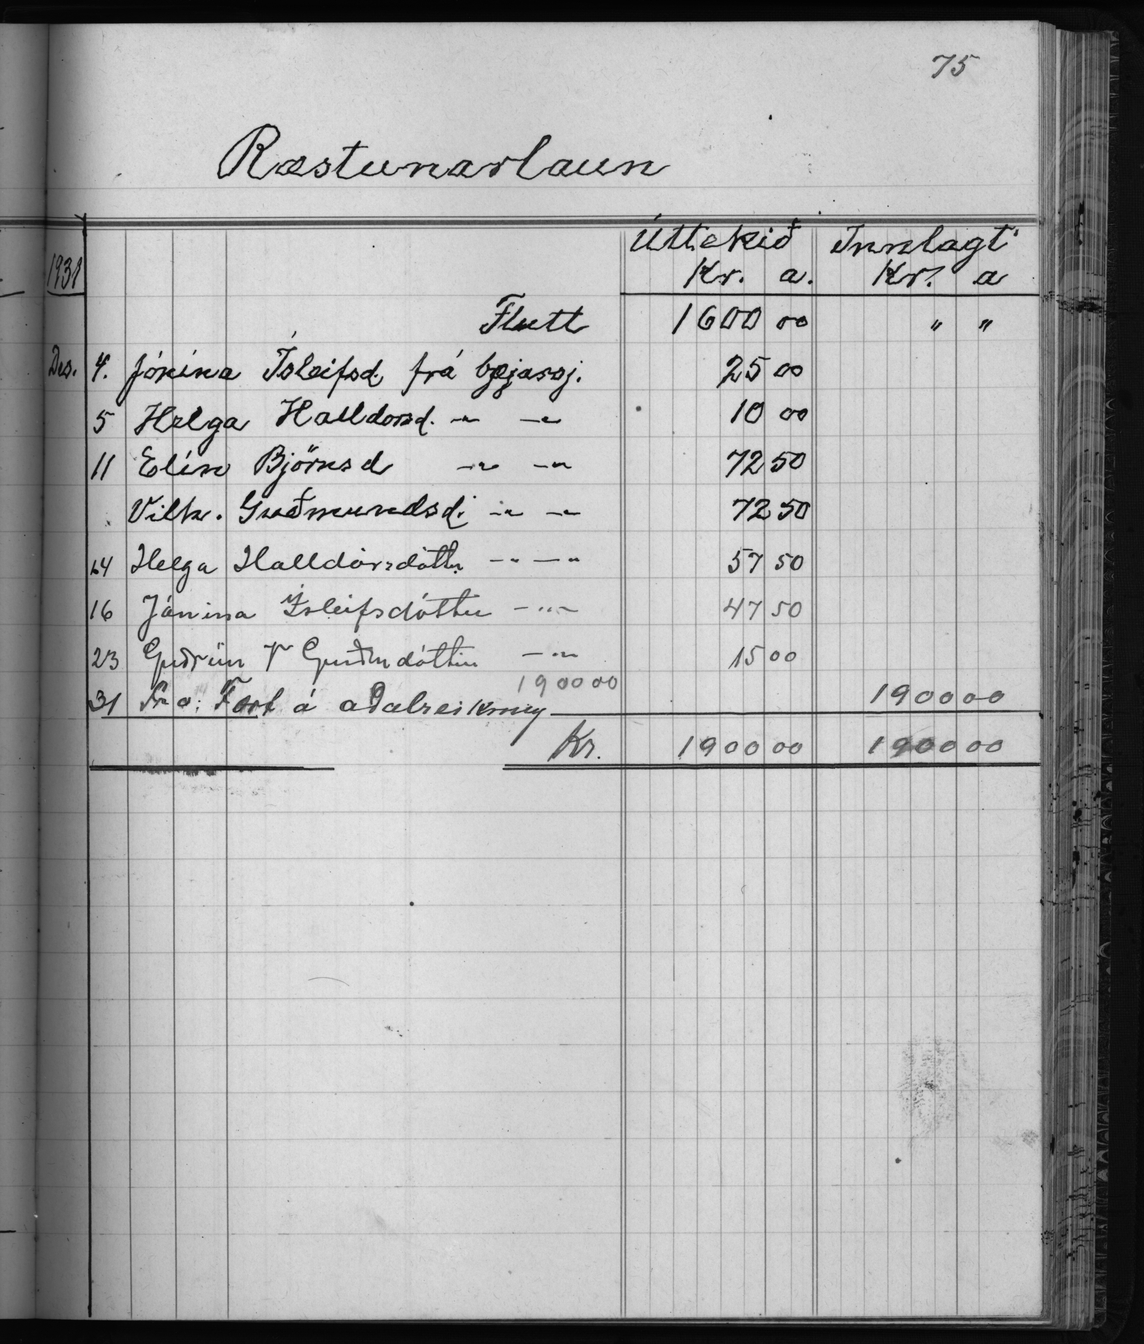 75
Ræstunarlaun
1931 Úttekið Innlagt
Kr. a. Kr. a
Flutt 1600 00 " "
Des. 4. Jónína Ísleifsd. frá bæjarsj. 25 00
5 Helga Halldórsd. -"- -"- 10 00
11 Elín Björnsd -"- -"- 72 50
Vilh. Guðmundsd. -"- -"- 72 50
14 Helga Halldórsdóttir -"- -"- 57 50
16 Jónína Ísleifsdóttir -"- 47 50
23 Guðrún Guðmdóttir -"- 15 00
1900 00
31 Fært á aðalreikning 1900 00
Kr. 1900 00 1900 00